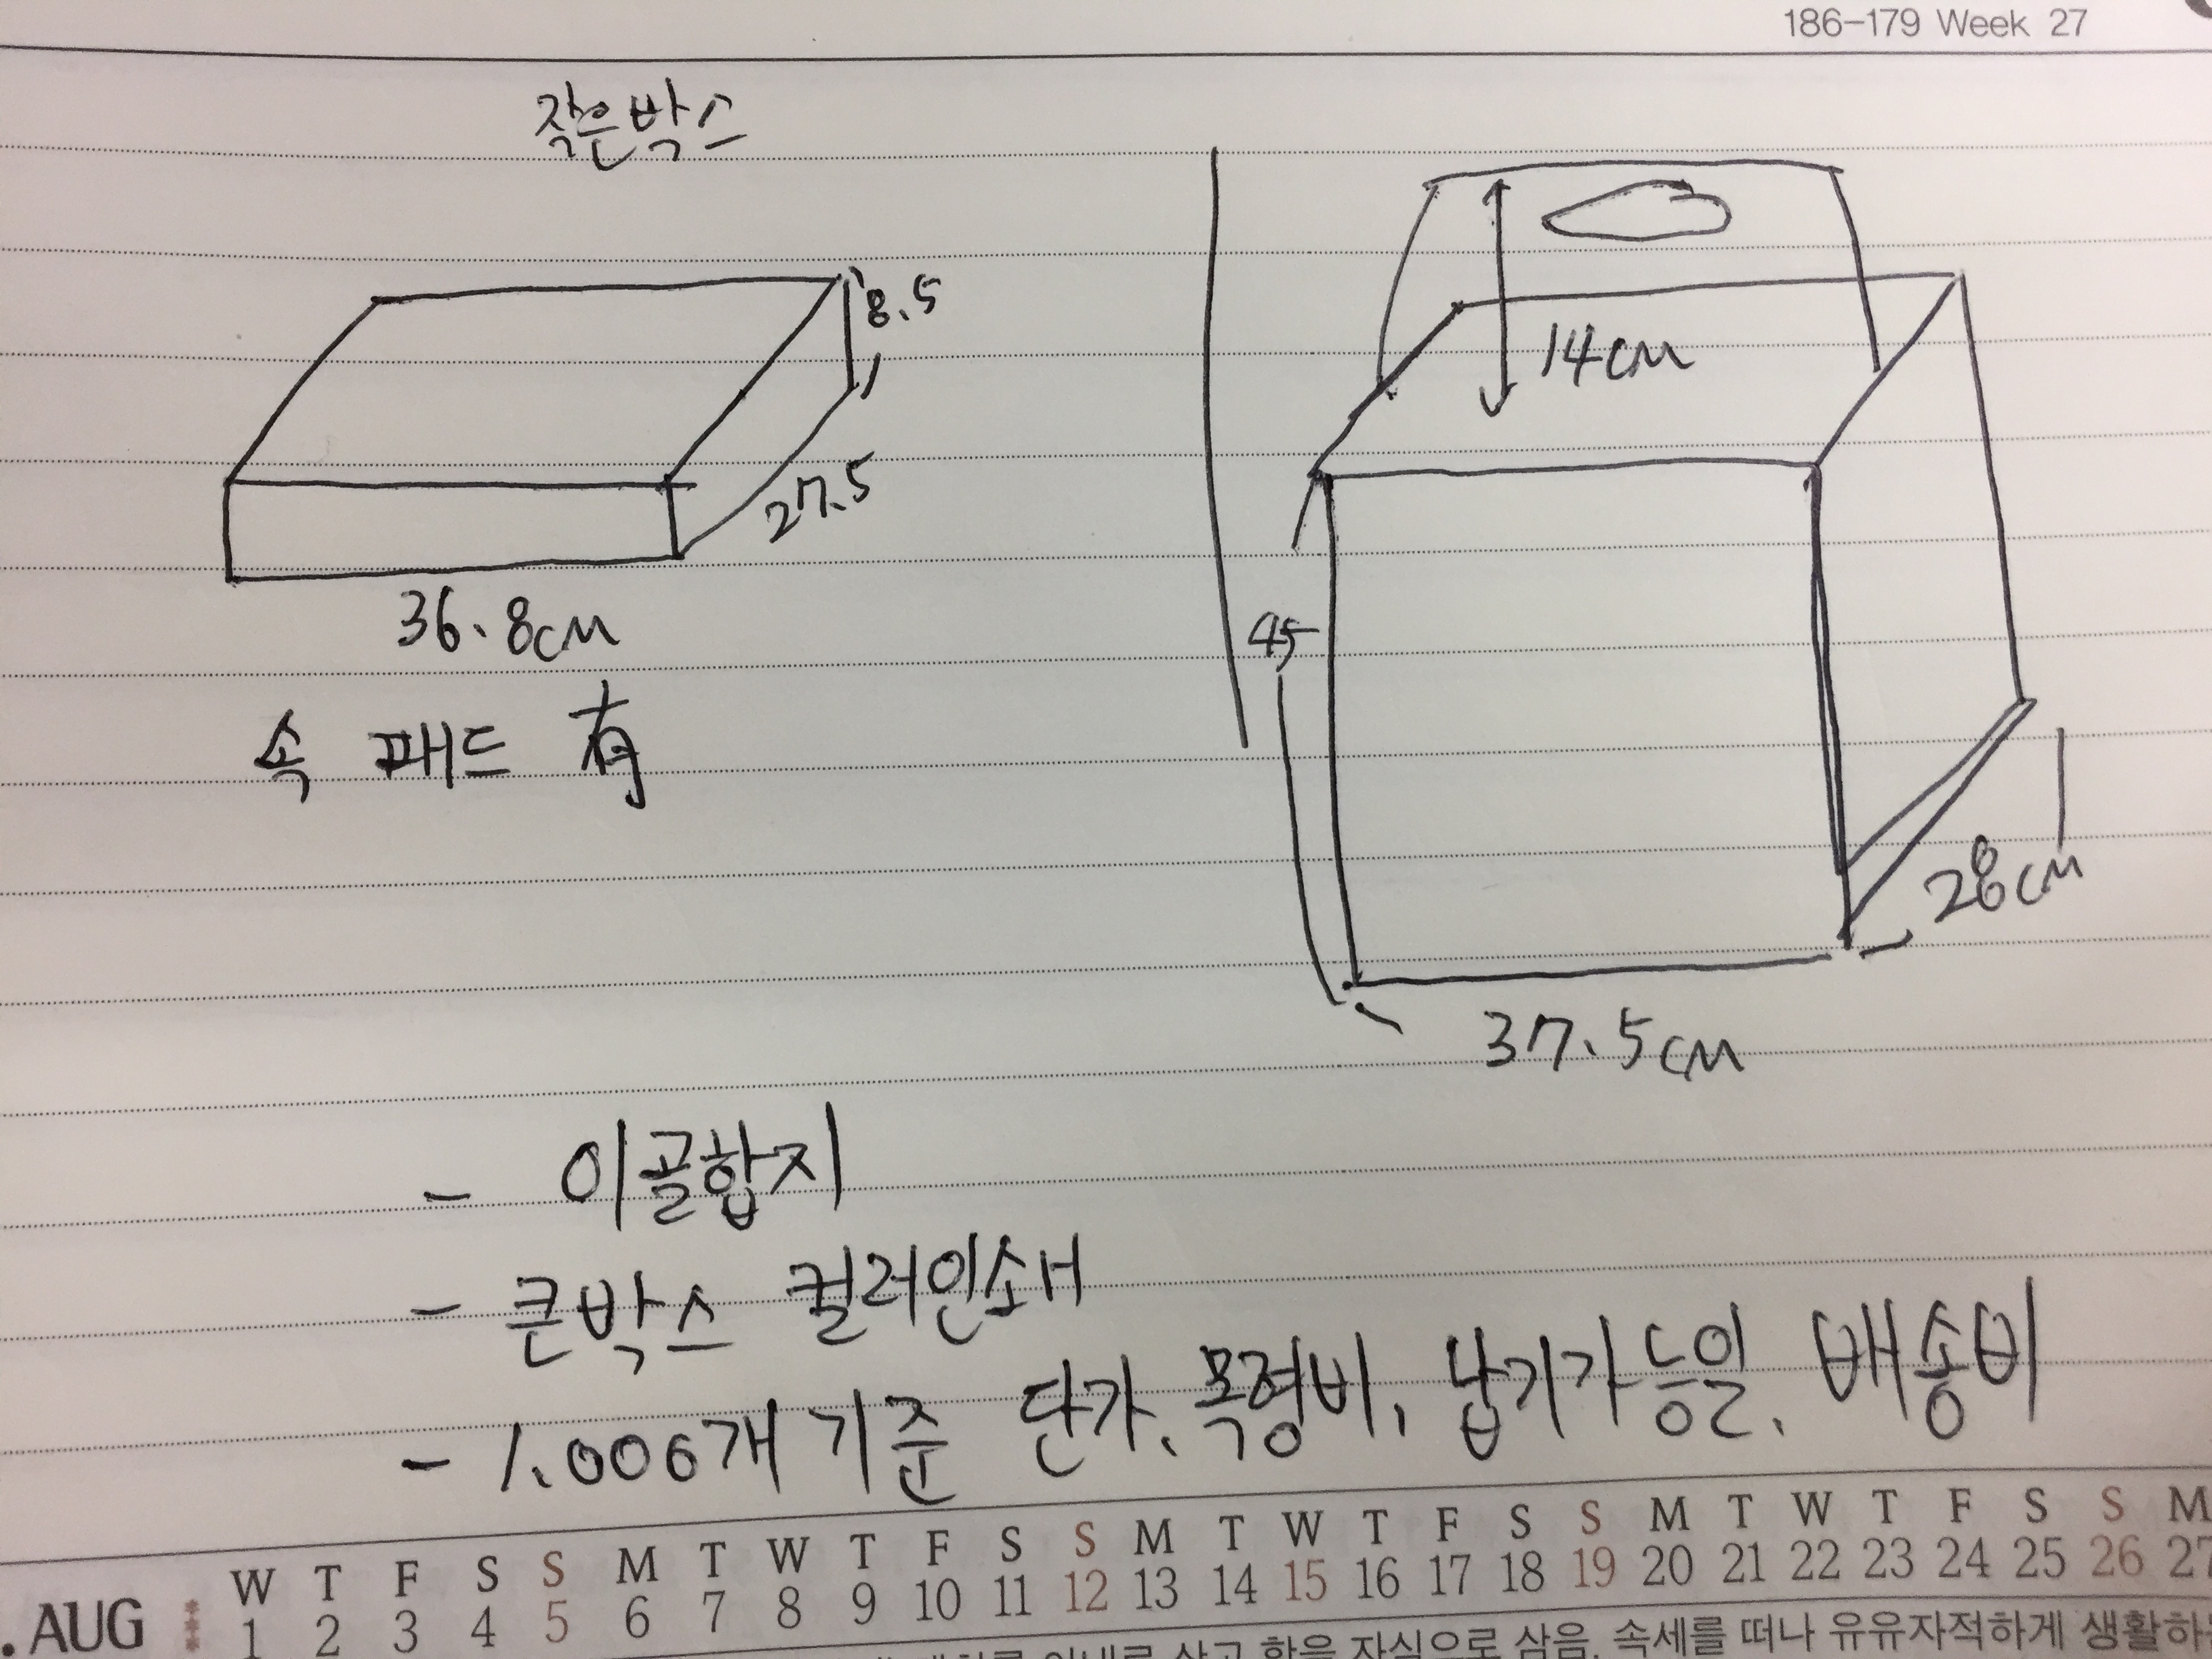 186-179 Week 27
작은박스
8.5
27.5
36.8cm
속 패드 有
14cm
45
28cm
37.5cm
- 이골합지
- 큰박스 컬러인쇄
- 1.000개 기준 단가, 목형비, 납기가능일, 배송비
W T F S S M T W T F S S M T W T F S S M T W T F S S M
. AUG 1 2 3 4 5 6 7 8 9 10 11 12 13 14 15 16 17 18 19 20 21 22 23 24 25 26 27
살고 함을 자심으로 삼음. 속세를 떠나 유유자적하게 생활하